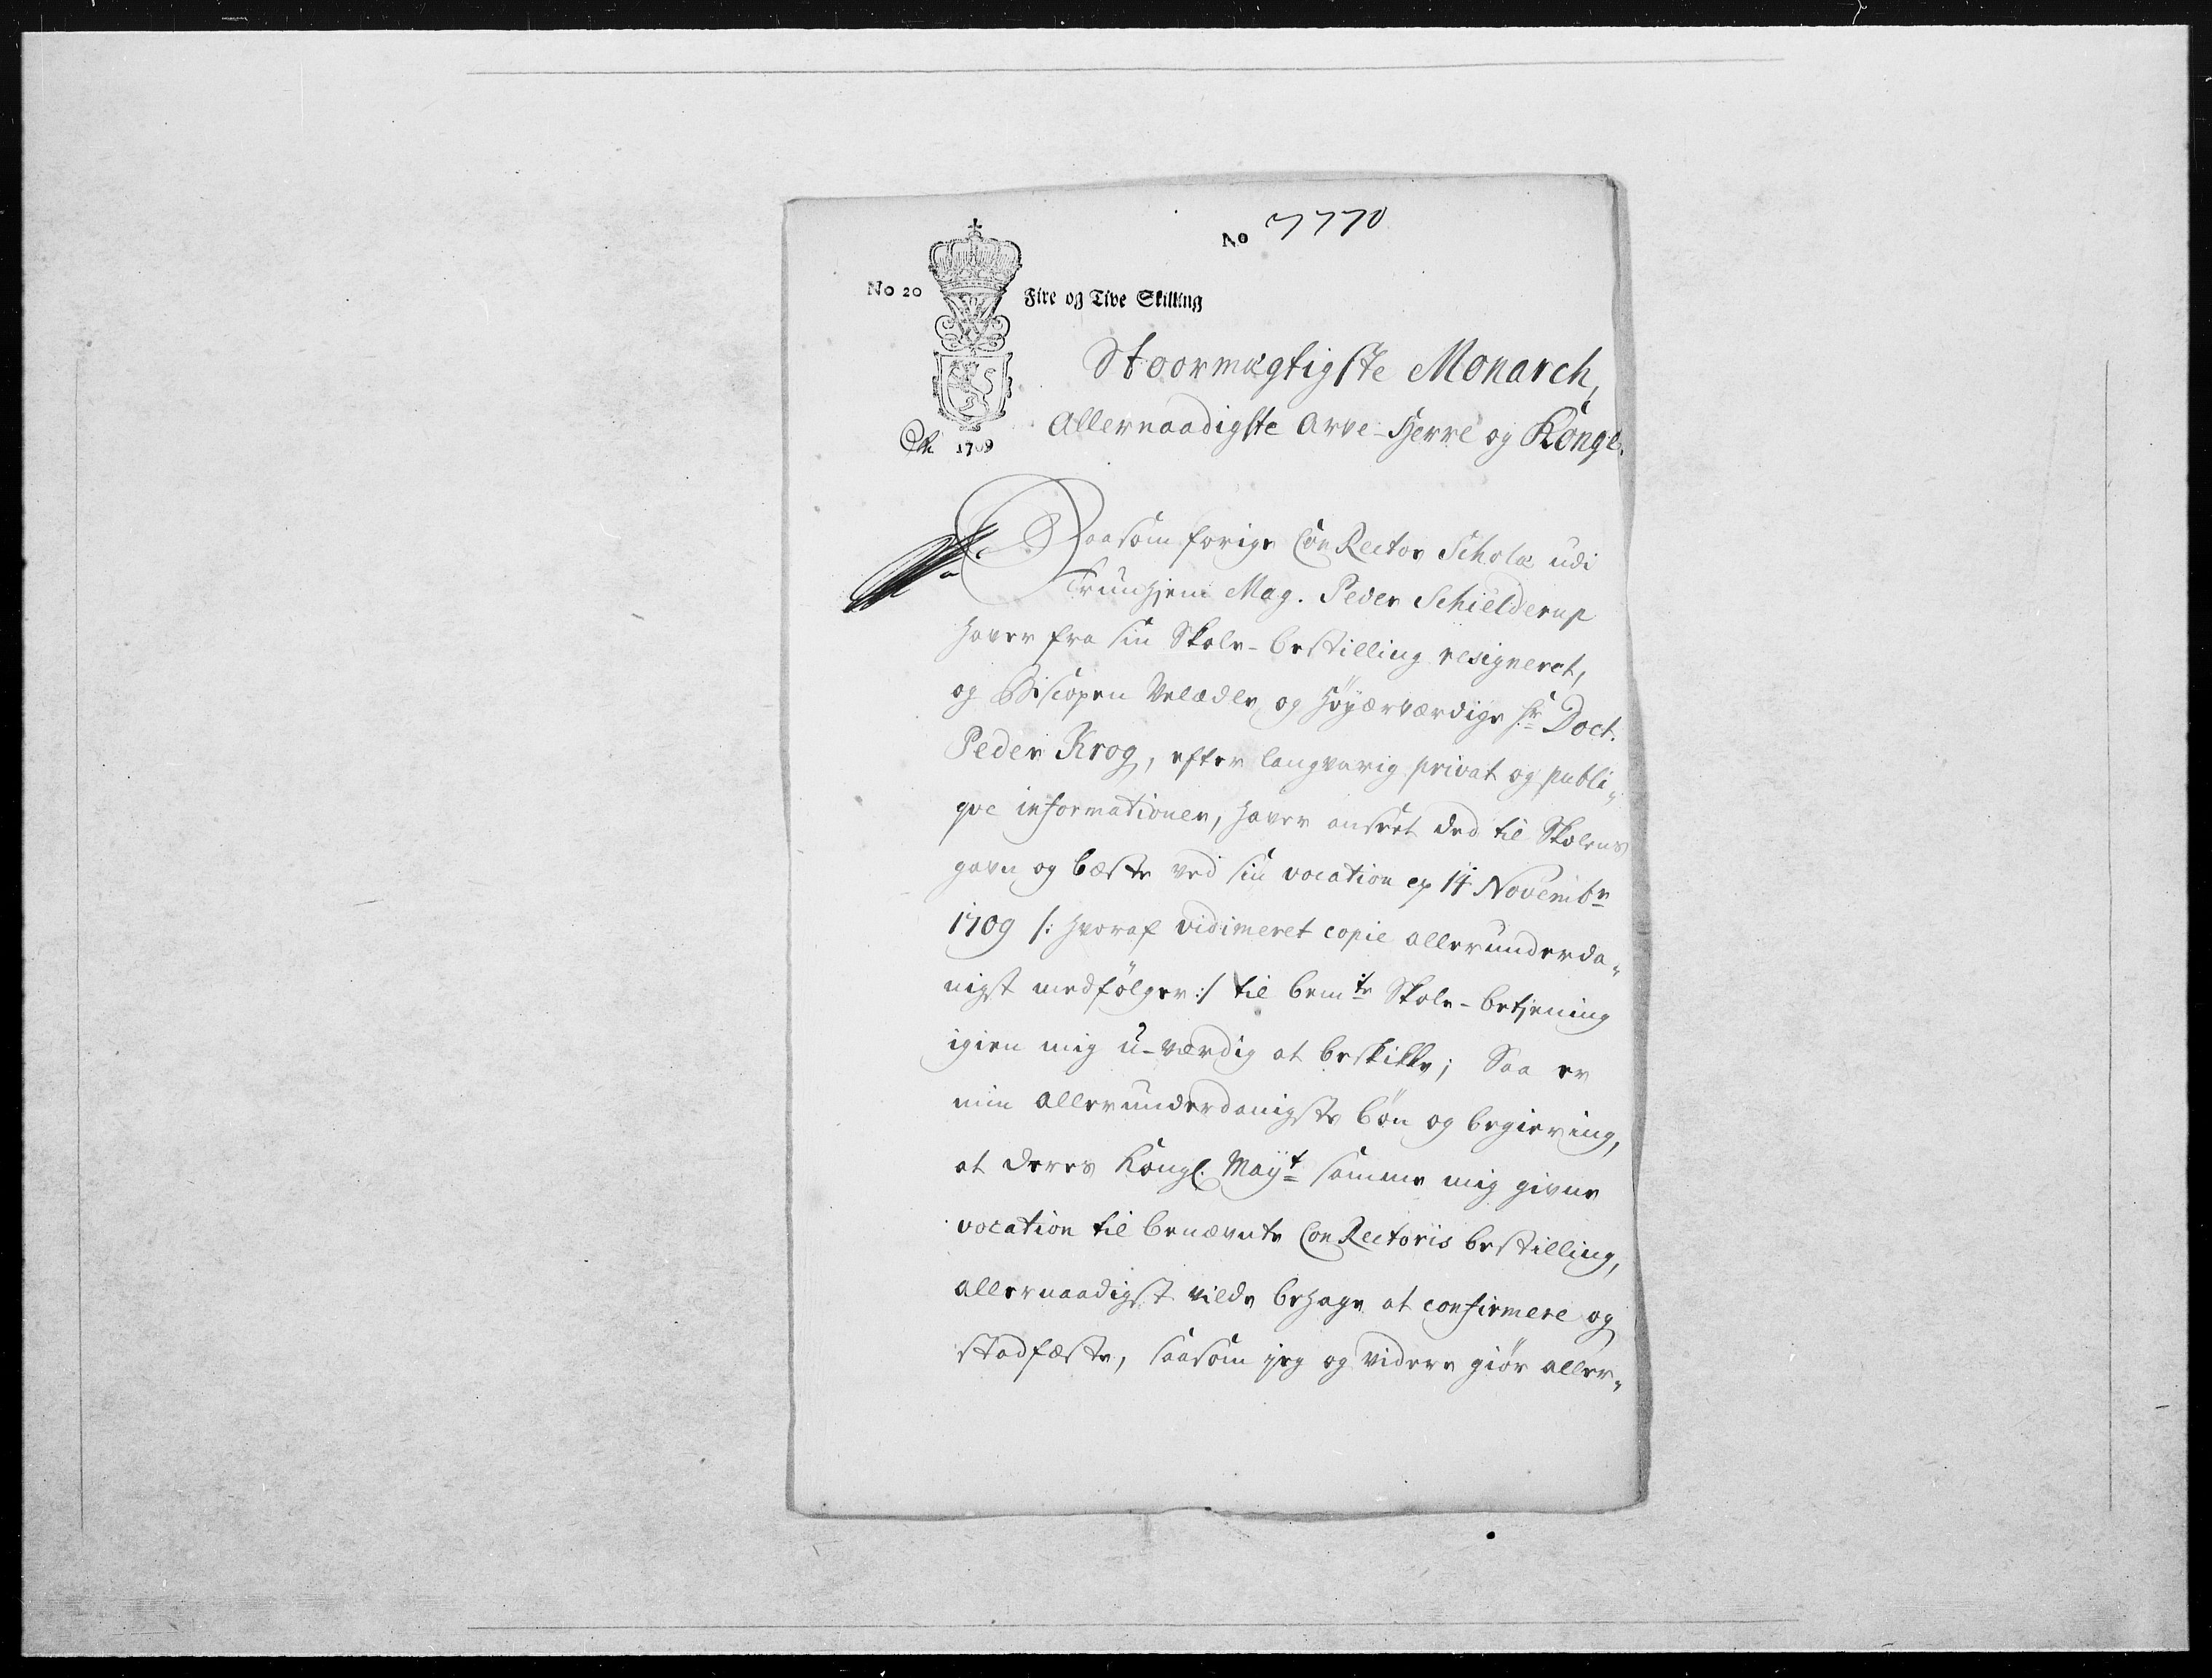 No 7770
No 20
Fire og Tive Skilling
1709
Stoormægtigste Monarch,
Allernaadigste Arve-Herre og Konge.
Saasom forige ConRector Scholæ udi
Trunhjem Mag. Peder Schielderup
haver fra sin Skole-bestilling resigneret,
og Biscopen Velædle og Höyærværdige Hr Doct.
Peder Krog, efter langvarig privat og publi„
qve informationer, haver anseet ded til Skolens
gavn og beste ved sin vocation af 14 Novembr
1709 /: hvoraf vidimeret copie allerunderda„
nigst medfölger :/ til bemte Skole-betjening
igien mig u-værdig at beskikke; Saa er
min allerunderdanigste bön og begiering,
at deres Kongl. Mayt samme mig givne
vocation til benævnte ConRectoris bestilling,
allernaadigst vilde behage at confirmere og
stadfæste, saasom jeg og videre giör aller„